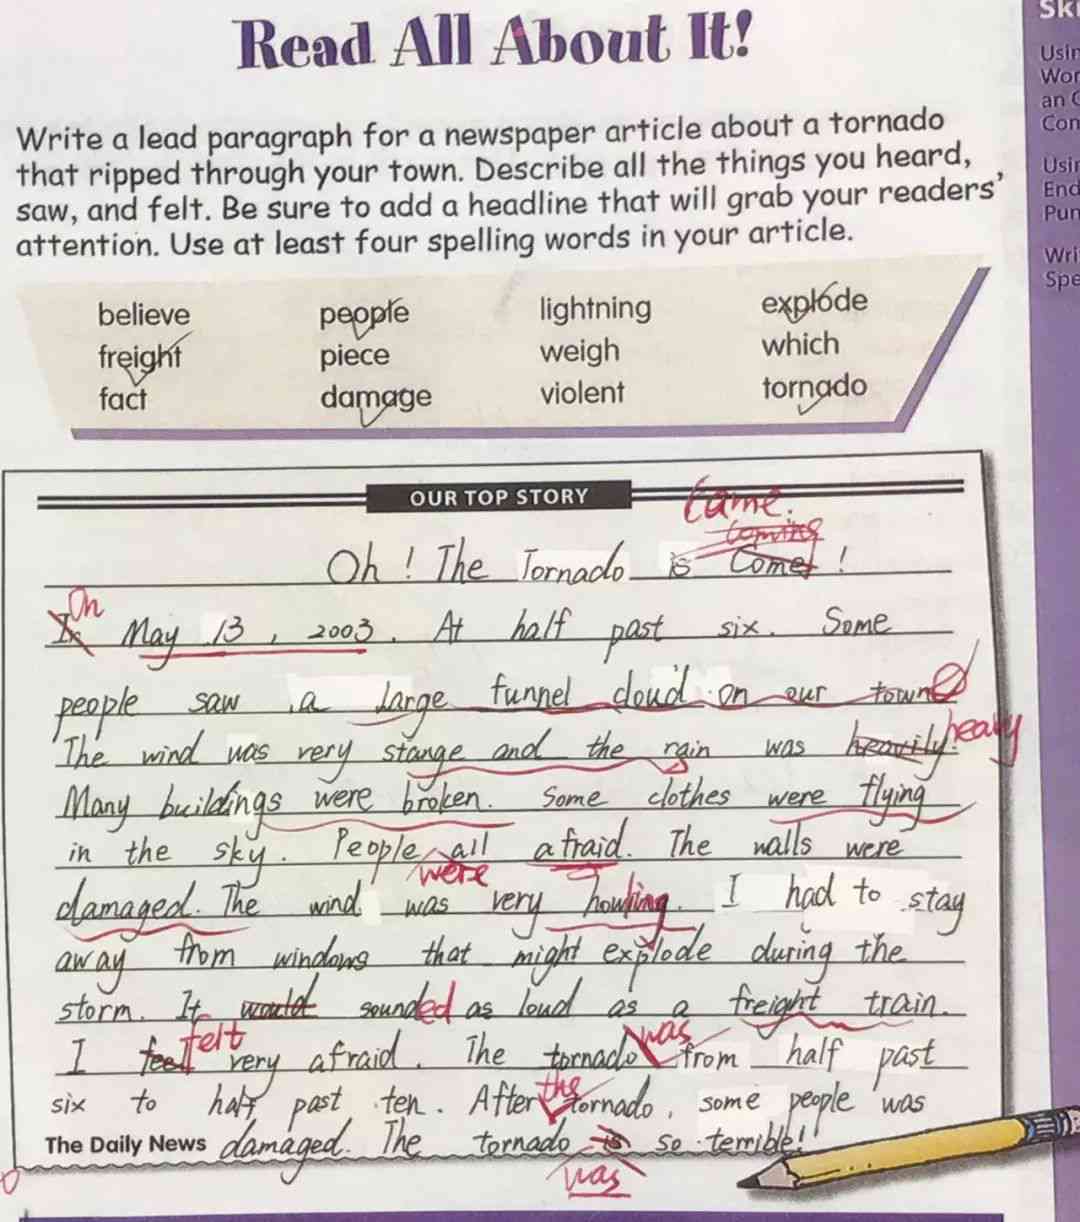 Read All About It!
Ski
Usin
Wor
an C
Con
Write a lead paragraph for a newspaper article about a tornado
that ripped through your town. Describe all the things you heard,
saw, and felt. Be sure to add a headline that will grab your readers'
attention. Use at least four spelling words in your article.
Usin
End
Pun
Wri
Spe
believe people lightning explode
freight piece weigh which
fact damage violent tornado
OUR TOP STORY
Came.
coming
Oh! The Tornado is Comes!
On
In May 13, 2003. At half past six. Some
people saw a large funnel cloud on our town.
The wind was very stange and the rain was heavily. heavy
Many buildings were broken. Some clothes were flying
in the sky. People all afraid. The walls were
were
damaged. The wind was very howling. I had to stay
away from windows that might explode during the
storm. It would sounded as loud as a freight train.
felt was
I feel very afraid. The tornado from half past
the
six to half past ten. After tornado, some people was
The Daily News damaged. The tornado is so terrible!
was